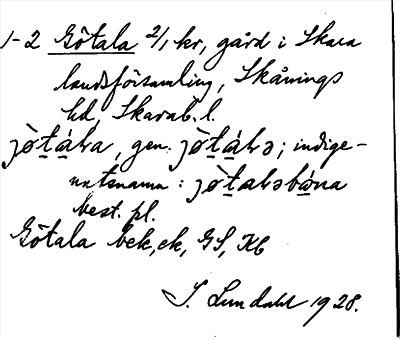 1-2 Götala 2/1 kr, gård i Skara
landsförsamling, Skånings
hd, Skarab. l.
gen. ; indige-
natsnamn :
best. pl.
Götala bek, ek, GS, Kb
S. Lundahl 1928.